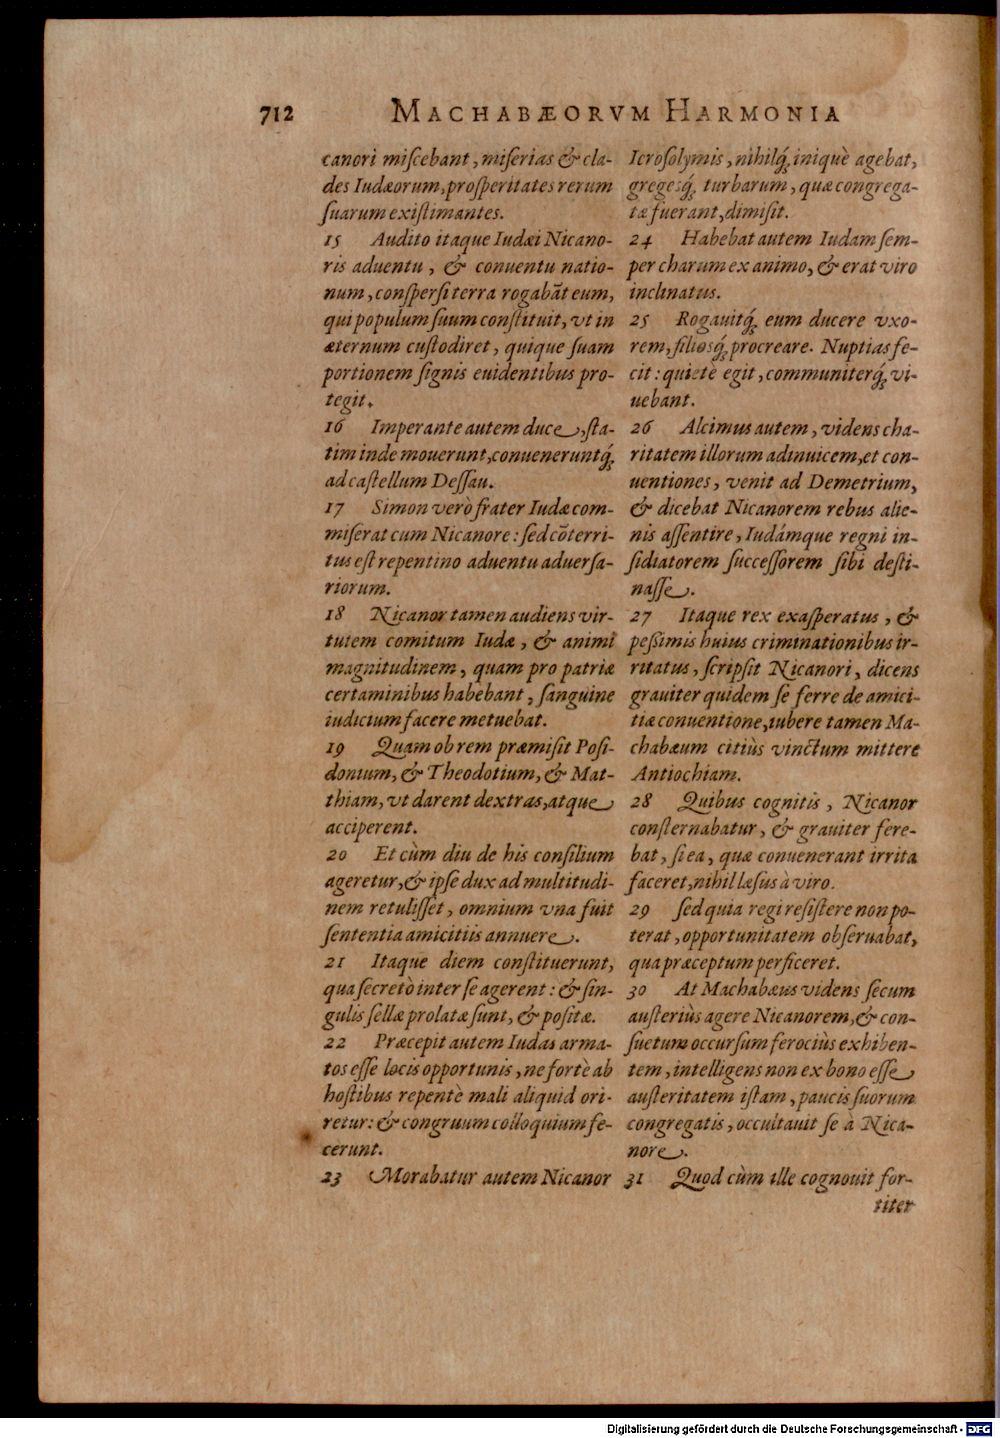 712 MACHABÆORVM HARMONIA
canori miſcebant, miſerias & cla-
des Iudæorum, proſperitates rerum
ſuarum exiſtimantes.
15 Audito itaque Iudæi Nicano-
ris aduentu, & conuentu natio-
num, conſperſi terra rogabāt eum,
qui populum ſuum conſtituit, vt in
æternum cuſtodiret, quique ſuam
portionem ſignis euidentibus pro-
tegit.
16 Imperante autem duce, ſta-
tim inde mouerunt, conueneruntq́;
ad caſtellum Deſſau.
17 Simon verò frater Iudæ com-
miſerat cum Nicanore: ſed cōterri-
tus eſt repentino aduentu aduerſa-
riorum.
18 Nicanor tamen audiens vir-
tutem comitum Iudæ, & animi
magnitudinem, quam pro patriæ
certaminibus habebant, ſanguine
iudicium facere metuebat.
19 Quam ob rem præmiſit Poſi-
donium, & Theodotium, & Mat-
thiam, vt darent dextras, atque
acciperent.
20 Et cùm diu de his conſilium
ageretur, & ipſe dux ad multitudi-
nem retuliſſet, omnium vna fuit
ſententia amicitiis annuere.
21 Itaque diem conſtituerunt,
qua ſecretò inter ſe agerent: & ſin-
gulis ſellæ prolatæ ſunt, & poſitæ.
22 Præcepit autem Iudas arma-
tos eſſe locis opportunis, ne fortè ab
hoſtibus repentè mali aliquid ori-
retur: & congruum colloquium fe-
cerunt.
23 Morabatur autem Nicanor
Ieroſolymis, nihilq́; iniquè agebat,
gregesq́; turbarum, quæ congrega-
tæ fuerant, dimiſit.
24 Habebat autem Iudam ſem-
per charum ex animo, & erat viro
inclinatus.
25 Rogauitq́; eum ducere vxo-
rem, filiosq́; procreare. Nuptias fe-
cit: quietè egit, communiterq́; vi-
uebant.
26 Alcimus autem, videns cha-
ritatem illorum adinuicem, et con-
uentiones, venit ad Demetrium,
& dicebat Nicanorem rebus alie-
nis aſſentire, Iudámque regni in-
ſidiatorem ſucceſſorem ſibi deſti-
naſſe.
27 Itaque rex exaſperatus, &
peſſimis huius criminationibus ir-
ritatus, ſcripſit Nicanori, dicens
grauiter quidem ſe ferre de amici-
tiæ conuentione, iubere tamen Ma-
chabæum citiùs vinctum mittere
Antiochiam.
28 Quibus cognitis, Nicanor
conſternabatur, & grauiter fere-
bat, ſi ea, quæ conuenerant irrita
faceret, nihil læſus à viro.
29 ſed quia regi reſiſtere non po-
terat, opportunitatem obſeruabat,
qua præceptum perficeret.
30 At Machabæus videns ſecum
auſteriùs agere Nicanorem, & con-
ſuetum occurſum ferociùs exhiben-
tem, intelligens non ex bono eſſe
auſteritatem iſtam, paucis ſuorum
congregatis, occultauit ſe à Nica-
nore.
31 Quod cùm ille cognouit for-
titer
Digitalisierung gefördert durch die Deutsche Forschungsgemeinschaft - DFG